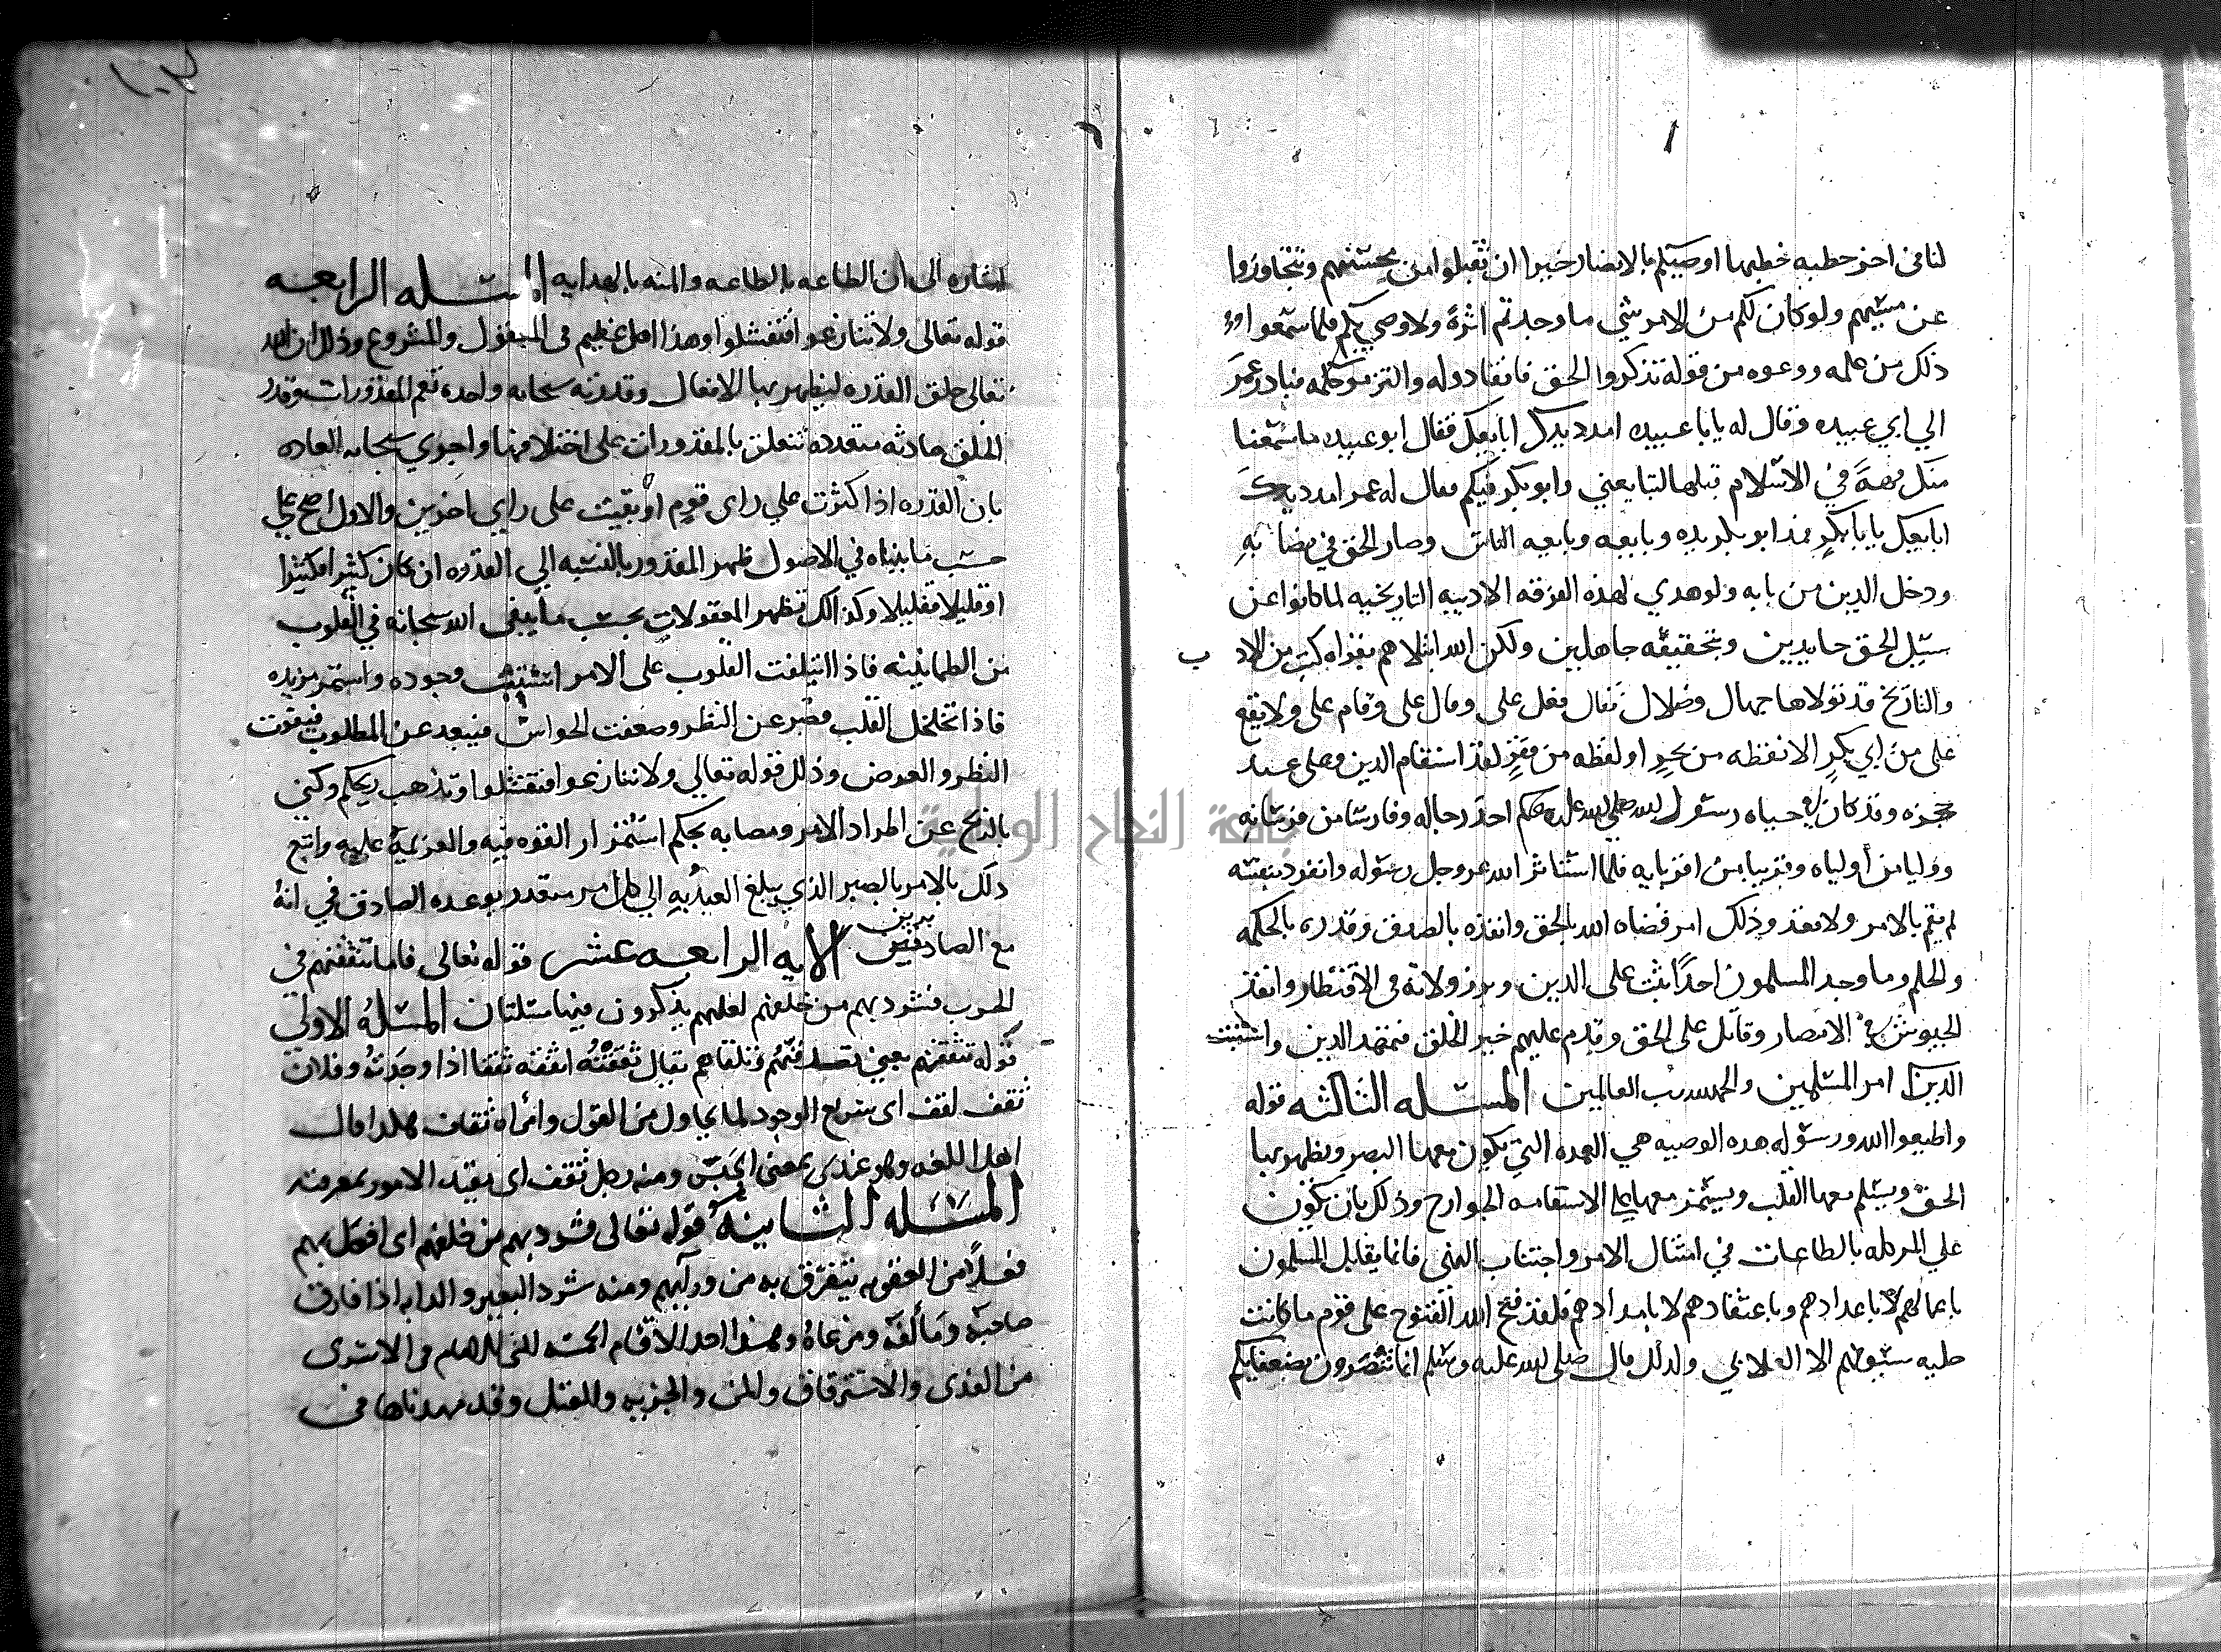 لنا في اخر خطبه خطبها اوصيكم بالانصار خيرا ان تقبلوا من محسنهم وتتجاوزوا
عن مسيهم ولو كان لكم من الامر شي ما وجدتم اثرة ولا وصي بكم فلما سمعوا
ذلك من علمه ووعوه من قوله تذكروا الحق فانقادوا له والتزموا حكمه فبادر عمر
الي ابي عبيده وقال له يابا عبيده امدد يدك ابايعك فقال ابو عبيده ما سمعنا
منك فهة في الاسلام قبلها اتبايعني وابو بكر فيكم فقال له عمر امدد يدك
ابايعك يابا بكر فمد ابو بكر يده وبايعه وبايعه الناس وصار الحق في نصابه
ودخل الدين من بابه ولو هدي لهذه الفرقه الادبيه التاريخيه لما كانوا عن
سبيل الحق حايدين وبتحقيقه جاهلين ولكن الله ابتلاهم بقراه كتب من الاد ب
والتاريخ قد تولاها جهال وضلال تقال فعل علي وقال علي وقام علي ولا يقع
علي من ابي بكر الا نقطه من بحر او لفظه من لقد استقام الدين وعلي عند
حجره وقد كان في حياه رسول الله صلي الله عليه وسلم احد رجاله وفارسا من فرسانه
ووليا من أولياه وقريبا من اقربايه فلما استاثر الله عز وجل رسوله وانفرد بنفسه
لم يقم بالامر ولا نفذ وذلك امر قضاه الله بالحق وانفذه بالصدق وقدره بالحكمه
والحلم وما وجد المسلمون احدا اثبت علي الدين وبرز ولاته في الاقطار وانفذ
الجيوش في الامصار وقاتل علي الحق وقدم عليهم خير الخلق فتمهد الدين واستتبت
الدين امر المسلمين والحمد لله رب العالمين المسله الثالثه قوله
واطيعوا الله ورسوله هذه الوصيه هي العمده التي يكون معها البصر ويظهر بها
الحق ويسلم معها القلب ويستمر معها علي الاستقامه الجوارح وذلك بان يكون
علي المرحله بالطاعات في امتثال الامر واجتناب النهي فانما يقابل المسلمون
باعمالهم لا باعدادهم وباعتقادهم لا بامدادهم فلقد فتح الله الفتوح علي قوم ما كانت
حليه سيوفهم الا العلابي ولذلك قال صلي الله عليه وسلم انما تنصرون بضعفايكم
اشاره الي ان الطاعه بالطاعه والمنه بالهدايه المسله الرابعه
قوله تعالي ولا تنازعوا فتفشلوا وهذا اصل عظيم في المعقول والمشروع وذلك ان الله
تعالي خلق القدره ليظهر بها الافعال وقدرته سبحانه واحده تعم المقدورات وقدر
الخلق حادثه متعدده تتعلق بالمقدورات علي اختلافها واجري سبحانه العاده
بان القدره اذا كثرت علي راي قوم او بقيت علي راي اخرين والاول اصح علي
حسب ما بيناه في الاصول ظهر المقدور بالنسبه الي القدره ان كان كثيرا فكثيرا
او قليلا فقليلا وكذالك تظهر المفعولات بحسب ما يلقي الله سبحانه في القلوب
من الطمانينه فاذا ائتلفت القلوب علي الامر استتب وجوده واستمر مريره
فاذا تخلخل القلب قصر عن النظر وضعفت الحواس فيبعد عن المطلوب فيفوت
النظر والغرض وذلك قوله تعالي ولا تنازعوا فتفشلوا وتذهب ريحكم وكني
بالريح عن اطراد الامر ومضايه بحكم استمرار القوه فيه والعزيمة عليه واتبع
ذلك بالامر بالصبر الذي يبلغ العبد به الي كل امر متعدر بوعده الصادق في انه
برين
مع الصادقين الايه الرابعه عشر قوله تعالي فاما تثقفنهم في
الحرب فشرد بهم من خلفهم لعلهم يذكرون فيها مسلتان المسله الاولي
قوله تثقفنهم يعني تصدفنهم وتلقاهم يقال ثقفته اثقفه ثقفا اذا وجدته وفلان
ثقف لقف اي سريع الوجود لما يحاول من القول وامراه ثقاف هكذا قال
اهل اللغه وهو عندي بمعني الحبس ومنه رجل ثقف اي يقيد الامور بمعرفته
المسله الثانيه قوله تعالي فشرد بهم من خلفهم اي افعل بهم
فعلا من العقوبه يتفرق به من ورايهم ومنه شرد البعير والدابه اذا فارق
صاحبه ومألفه ومرعاه وهذا احد الاقسام الخمسه التي للامام في الاسري
من الفدي والاسترقاق والمن والجزيه والقتل وقد مهدناها في